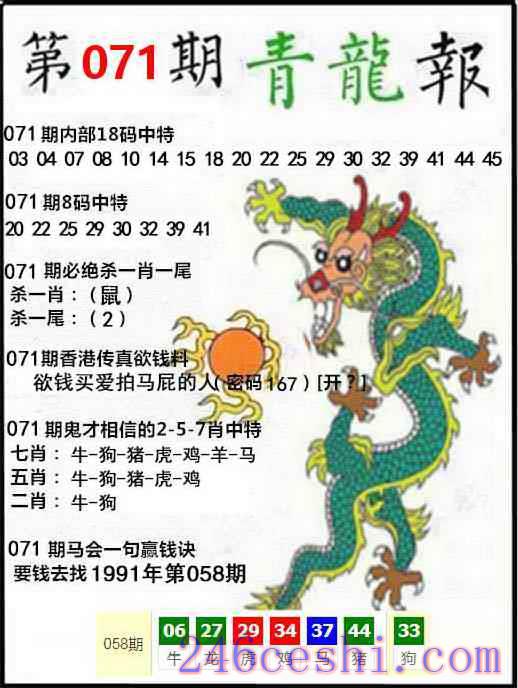 第071期青龍報
071期内部18码中特
03 04 07 08 10 14 15 18 20 22 25 29 30 32 39 41 44 45
071期8码中特
20 22 25 29 30 32 39 41
071 期必绝杀一肖一尾
杀一肖：（鼠）
杀一尾：（2）
071期香港传真欲钱料
欲钱买爱拍马屁的人(密码167)[开?]
071期鬼才相信的2-5-7肖中特
七肖：牛-狗-猪-虎-鸡-羊-马
五肖：牛-狗-猪-虎-鸡
二肖：牛-狗
071期马会一句赢钱诀
要钱去找1991年第058期
058期 06 27 29 34 37 44 33
牛 龙 虎 鸡 马 猪 狗
246ceshi.com